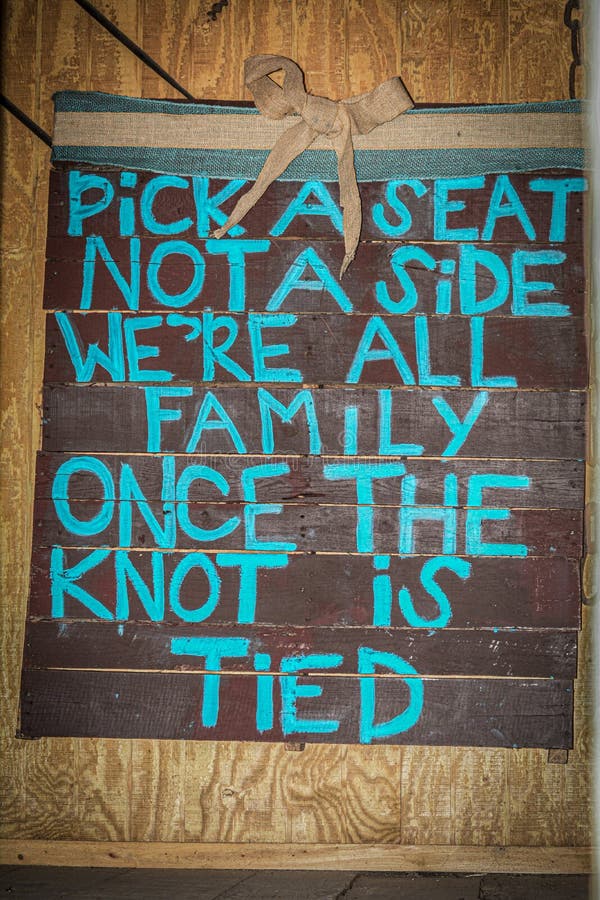 PiCK A SEAT
NOT A SiDE
WE'RE ALL
FAMILY
ONCE THE
KNOT iS
TiED